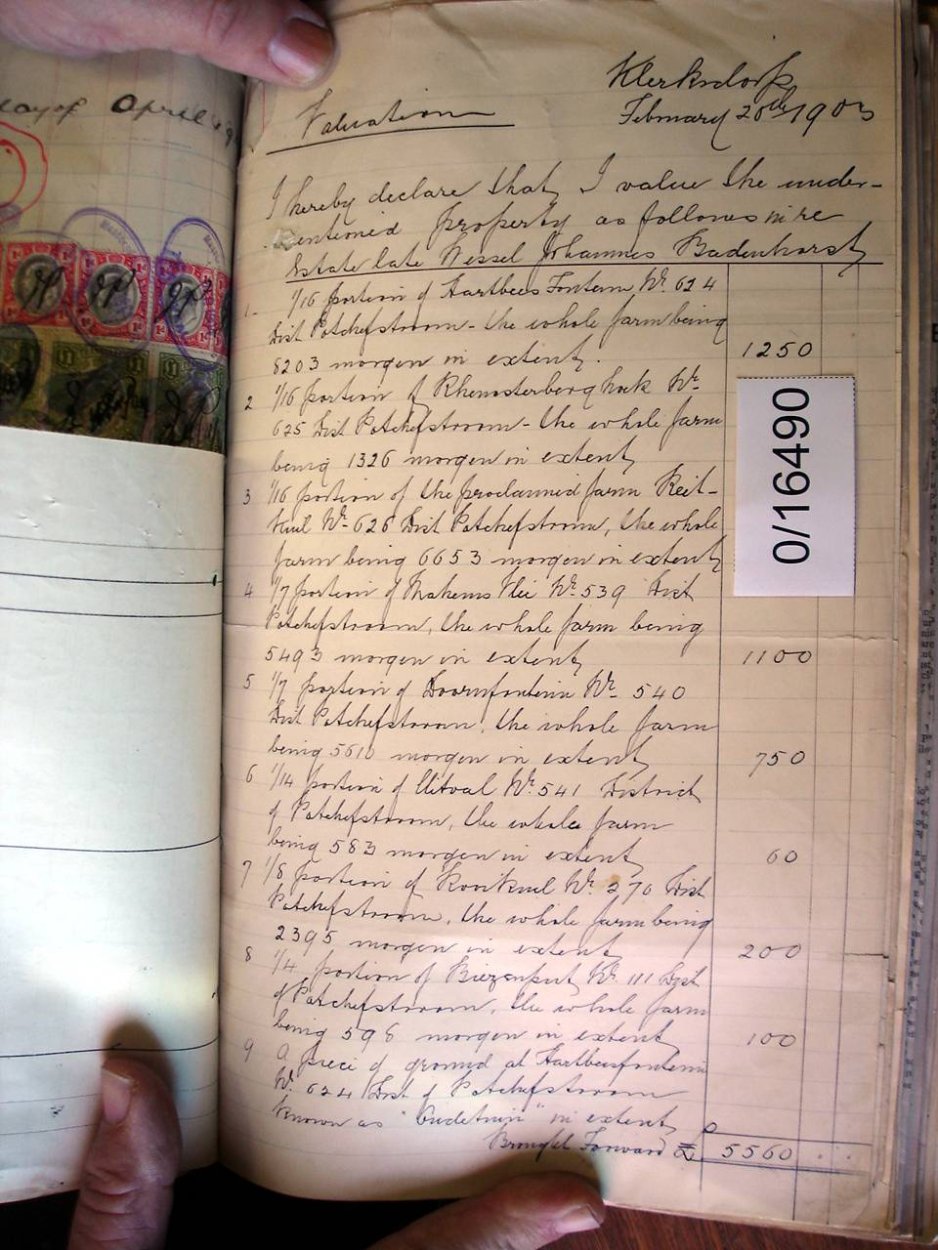 day of April
Klerksdorp
February 20th 1903
Valuation
I hereby declare that I value the under-
mentioned property as follows in re
Estate late Wessel Johannes Badenhorst
1. 1/16 portion of Hartbees Fontein No. 624
Dist Potchefstroom - the whole farm being
8203 morgen in extent. 1250
2 1/16 portion of Rhenosterberg hoek No.
625 Dist Potchefstroom - the whole farm
being 1326 morgen in extent
3 1/16 portion of the proclaimed farm Reit-
kuil No. 626 Dist Potchefstroom, the whole
farm being 6653 morgen in extent
0/16490
4 1/7 portion of Makems Vlei No. 539 Dist
Potchefstroom, the whole farm being
5493 morgen in extent 1100
5 1/7 portion of Doornfontein No. 540
Dist Potchefstroom, the whole farm
being 5610 morgen in extent 750
6 1/14 portion of Uitval No. 541 District
of Potchefstroom, the whole farm
being 583 morgen in extent 60
7 1/8 portion of Kooikuil No. 270 Dist
Potchefstroom, the whole farm being
2395 morgen in extent 200
8 1/4 portion of Biezenput No. 111 Dist
of Potchefstroom, the whole farm
being 598 morgen in extent 100
9 a piece of ground at Hartbeesfontein
No. 624 Dist of Potchefstroom
known as "Oudetuin" in extent
Brought Forward £ 5560 . .